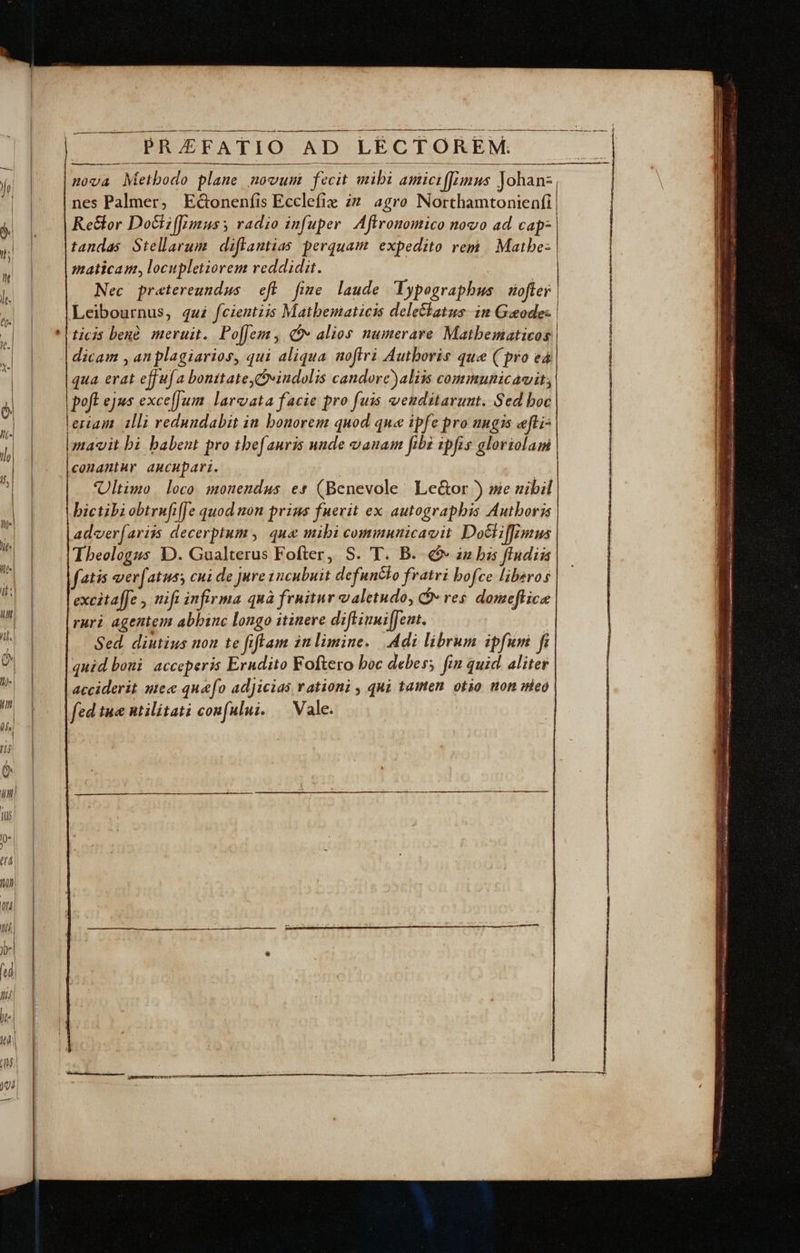 PRÆFATIO AD LECTOREM.
nova Methodo plane novum fecit mihi amiciſſimus Johan-
nes Palmer, Ectonenſis Eccleſiæ in agro Northamtonienſi
Rector Doctiſſimus; radio inſuper Aſtronomico novo ad cap-
tandas Stellarum diſtantias perquam expedito rem Mathe-
maticam, locupletiorem reddidit.
Nec prætereundus eſt ſine laude Typographus noſter
Leibournus, qui ſcientiis Mathematicis delectatus in Gæode-
* ticis benè meruit. Poſſem, & alios numerare Mathematicos
dicam, an plagiarios, qui aliqua noſtri Authoris quæ (pro eâ
qua erat effuſa bonitate, & indolis candore) aliis communicavit,
poſt ejus exceſſum larvata facie pro ſuis venditarunt. Sed hoc
etiam illi redundabit in honorem quod quæ ipſe pro nugis æſti-
mavit hi habent pro theſauris unde vanam ſibi ipſis gloriolam
conantur aucupari.
Ultimo loco monendus es (Benevole Lector) me nihil
hic tibi obtruſiſſe quod non prius fuerit ex autographis Authoris
adverſariis decerptum, quæ mihi communicavit Doctiſſimus
Theologus D. Gualterus Foſter, S. T. B. & in his ſtudiis
ſatis verſatus, cui de jure incubuit defuncto fratri hoſce liberos
excitaſſe, niſi infirma quâ fruitur valetudo, & res domeſticæ
ruri agentem abhinc longo itinere diſtinuiſſent.
Sed diutius non te ſiſtam in limine. Adi librum ipſum ſi
quid boni acceperis Erudito Foſtero hoc debes; ſin quid aliter
acciderit meæ quæſo adjicias rationi, qui tamen otio non meo
ſed tuæ utilitati conſului. Vale.